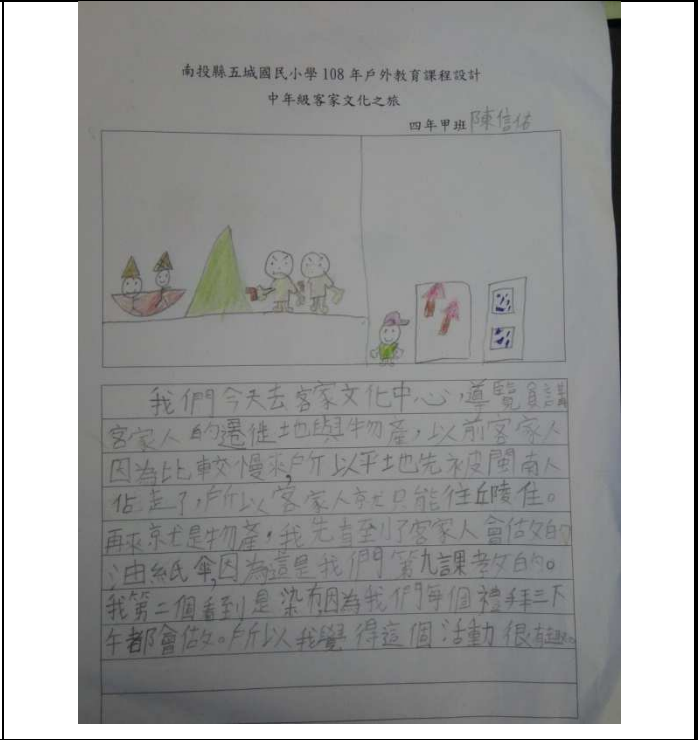 南投縣五城國民小學 108 年戶外教育課程設計
中年級客家文化之旅
四年甲班 陳信佑
我們今天去客家文化中心,導覽員講
客家人的遷徙地與物產,以前客家人
因為比較慢來,所以平地先被閩南人
佔走了,所以客家人就只能往丘陵住。
再來就是物產,我先看到了客家人會做的
油紙傘,因為這是我們第九課教的。
我第二個看到是染布因為我們每個禮拜三下
午都會做。所以我覺得這個活動很有趣。